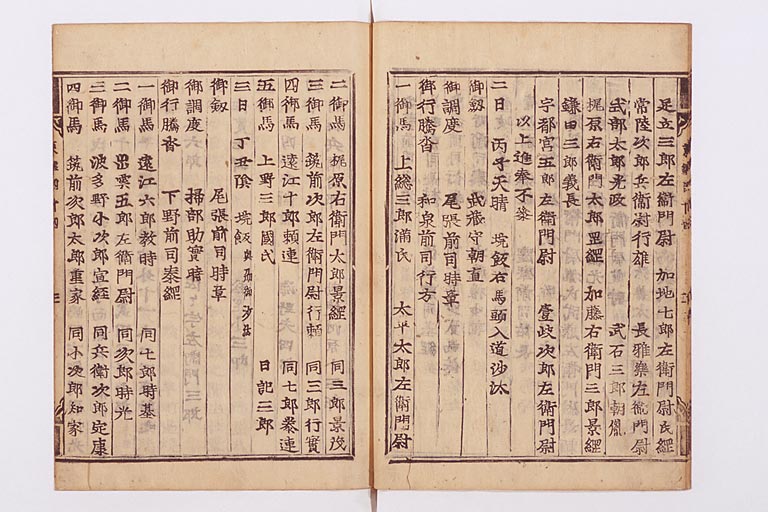 足立三郎左衛門尉 加地七郎左衛門尉氏経
常陸次郎兵衛尉行雄 長雅楽左衛門尉
武部太郎光政 武石三郎朝胤
梶原右衛門太郎景経 加藤右衛門三郎景経
鎌田三郎義長
宇都宮五郎左衛門尉 壹岐次郎左衛門尉
以上進奉不参
二日 丙子天晴 垸飯右馬頭入道沙汰
御劔 武蔵守朝直
御調度 尾張前司時章
御行騰沓 和泉前司行方
一御馬 上総三郎満氏 太平太郎左衛門尉
二御馬 梶原右衛門太郎景経 同三郎景茂
三御馬 筑前次郎左衛門尉行頼 同三郎行實
四御馬 遠江十郎頼連 同七郎泰連
五御馬 上野三郎國氏 日記三郎
三日 丁丑陰 垸飯
御劔 尾張前司時章
御調度 掃部助實時
御行騰沓 下野前司泰經
一御馬 遠江六郎教時 同七郎時基
二御馬 出雲五郎左衛門尉 同次郎時光
三御馬 波多野小次郎宣経 同兵衛次郎定康
四御馬 筑前次郎太郎重家 同小次郎知家